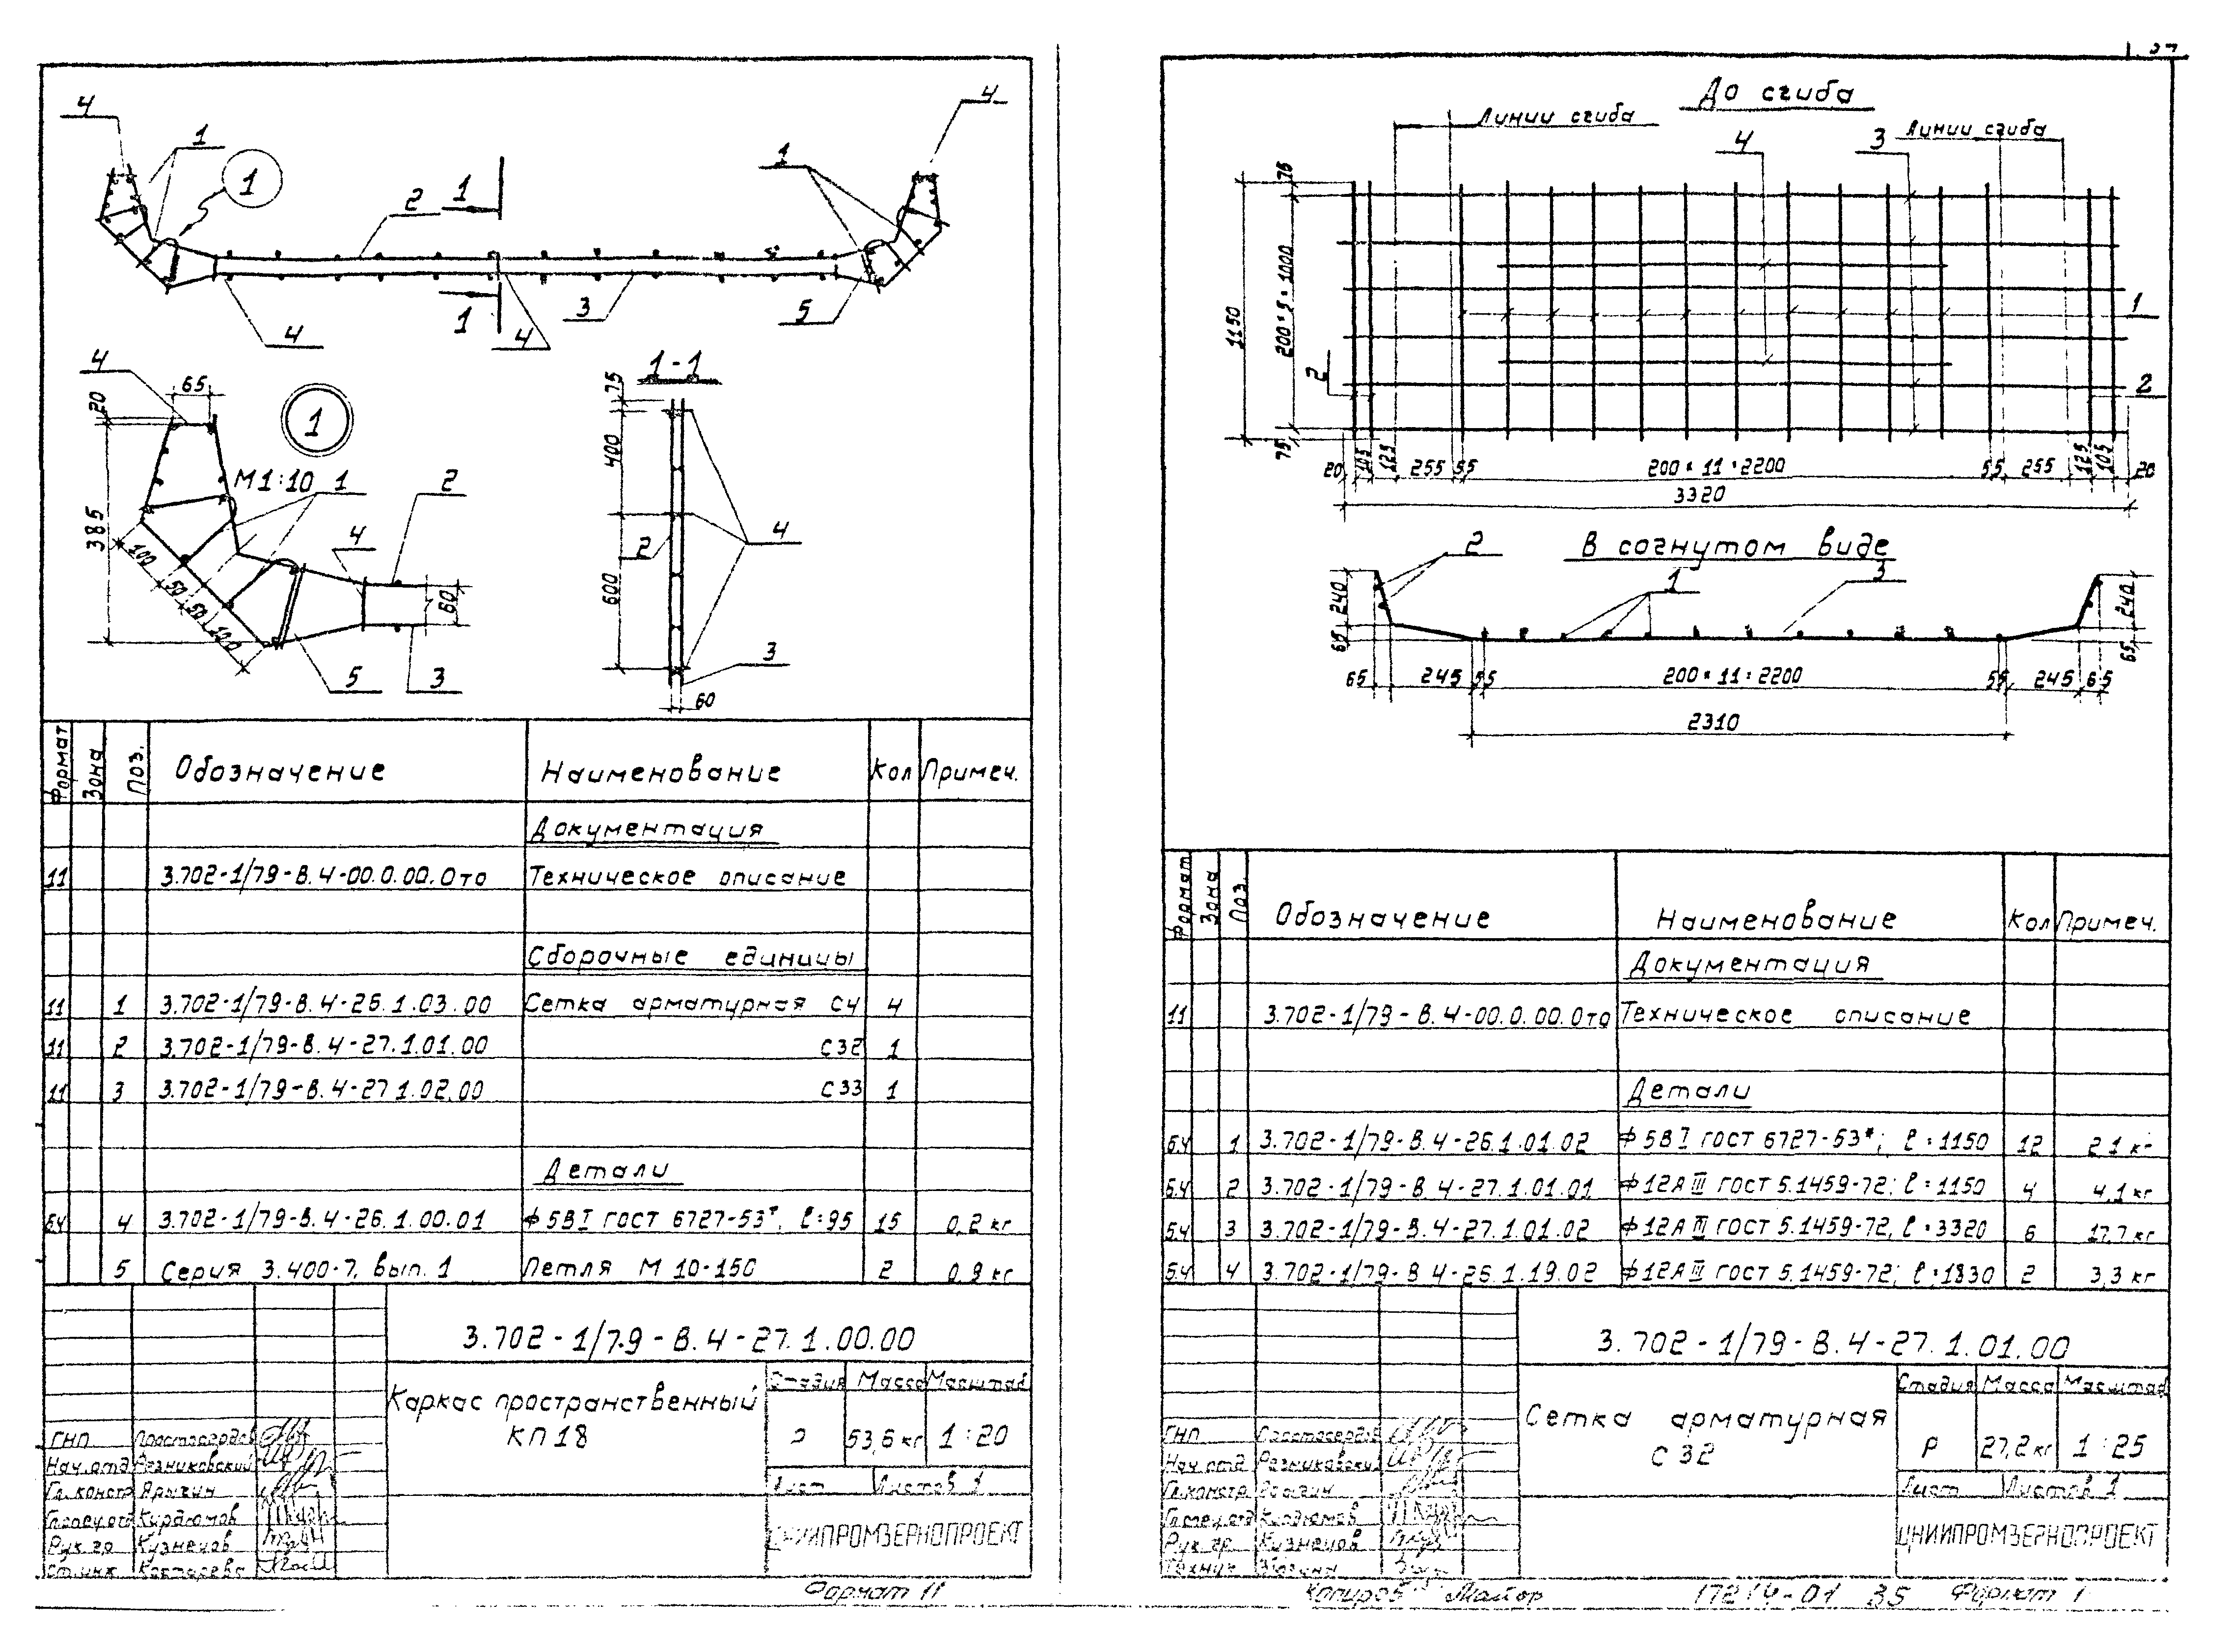 4
4
1
1
1
2
1
1
4
4
3
5
4
20
65
1
385
М1:10
1
2
4
60
100
50
50
100
5
3
1-1
75
400
600
2
4
3
60
Формат Зона Поз. Обозначение Наименование Кол Примеч.
Документация
11 3.702-1/79-В.4-00.0.00.0то Техническое описание
Сборочные единицы
11 1 3.702-1/79-В.4-26.1.03.00 Сетка арматурная С4 4
11 2 3.702-1/79-В.4-27.1.01.00 С32 1
11 3 3.702-1/79-В.4-27 1.02.00 С33 1
Детали
б.ч 4 3.702-1/79-В.4-26.1.00.01 ф5ВI ГОСТ 6727-53*, ℓ=95 15 0,2 кг
5 Серия 3.400-7, вып. 1 Петля М 10-150 2 0,9 кг
3.702-1/79-В.4-27.1.00.00
Каркас пространственный
КП18
Стадия Масса Масштаб
53,6 кг 1:20
Лист Листов 1
ЦНИИПРОМЗЕРНОПРОЕКТ
ГНП
Нач.отд Резниковский
Гл.констр Ярыгин
Гл.спец.отд Курдюмов
Рук.гр Кузнецов
Ст.инж Костарева
Формат 11
До сгиба
Линии сгиба
Линии сгиба
4
3
75
1150
200×5=1000
2
75
1
2
20 105 125 255 55 200×11=2200 55 255 125 105 20
3320
В согнутом виде
2
1
3
240
65
240
65
65 245 55 200×11=2200 55 245 65
2310
Формат Зона Поз. Обозначение Наименование Кол Примеч.
Документация
11 3.702-1/79-В.4-00.0.00.0то Техническое описание
Детали
б.ч 1 3.702-1/79-В.4-26.1.01.02 ф5ВI ГОСТ 6727-53*; ℓ=1150 12 2,1 кг
б.ч 2 3.702-1/79-В.4-27.1.01.01 ф12АIII ГОСТ 5.1459-72; ℓ=1150 4 4,1 кг
б.ч 3 3.702-1/79-В.4-27.1.01.02 ф12АIII ГОСТ 5.1459-72, ℓ=3320 6 17,7 кг
б.ч 4 3.702-1/79-В 4-26.1.19.02 ф12АIII ГОСТ 5.1459-72; ℓ=1830 2 3,3 кг
3.702-1/79-В.4-27.1.01.00
Сетка арматурная
С 32
Стадия Масса Масштаб
Р 27,2 кг 1:25
Лист Листов 1
ЦНИИПРОМЗЕРНОПРОЕКТ
ГНП
Нач.отд Резниковский
Гл.констр Ярыгин
Гл.спец.отд Курдюмов
Рук.гр. Кузнецов
Техник
Копиров Майор 17214-01 35 Формат 1